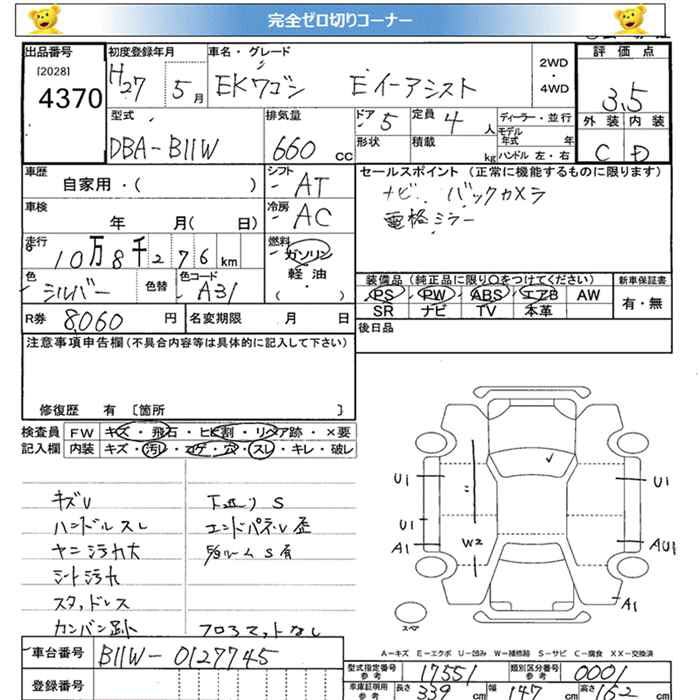 完全ゼロ切りコーナー
出品番号 初度登録年月 車名・グレード 2WD・4WD 評価点
[2028] 4370 H27 5月 EKワゴン Eイーアシスト 3.5
型式 排気量 ドア 5 定員 4人 ディーラー・並行 外装 内装
DBA-B11W 660cc 形状 積載 kg モデル年式 年 ハンドル 左・右 C D
車歴 自家用・( ) シフト AT セールスポイント (正常に機能するものに限ります)
車検 年 月( 日) 冷房 AC ナビ バックカメラ
電格ミラー
走行 10万8千276km 燃料 ガソリン 軽油 ( )
色 シルバー 色替 色コード A31 装備品 (純正品に限り○をつけてください) 新車保証書
PS PW ABS エアB AW 有・無
SR ナビ TV 本革
R券 8,060円 名変期限 月 日 後日品
注意事項申告欄(不具合内容等は具体的に記入して下さい)
修復歴 有 [箇所 ]
検査員 FW キズ・飛石・ヒビ割・リペア跡・×要
記入欄 内装 キズ・汚レ・コゲ・穴・スレ・キレ・破レ
キズV 下廻りS
ハンドルスレ エンドパネV歪
ヤニ汚れ大
シート汚れ
スタッドレス
カンバン跡 フロアマットなし
U1 U1
U1
A1 W2 AU1
A1
スペア
A-キズ E-エクボ U-凹み W-補修跡 S-サビ C-腐食 XX-交換済
車台番号 B11W-0127745
登録番号
型式指定番号 参考 17551 類別区分番号 参考 0001
車庫証明用 参考 長さ 339cm 幅 147cm 高さ 162cm